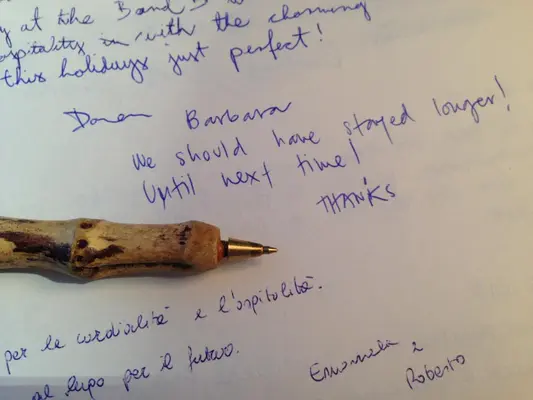 y at the B and B
ospitality in with the charming
this holidays just perfect!
Barbara
We should have stayed longer!
Until next time!
THANKS
per la cordialità e l'ospitalità.
al lupo per il futuro.
Emanuela e
Roberto